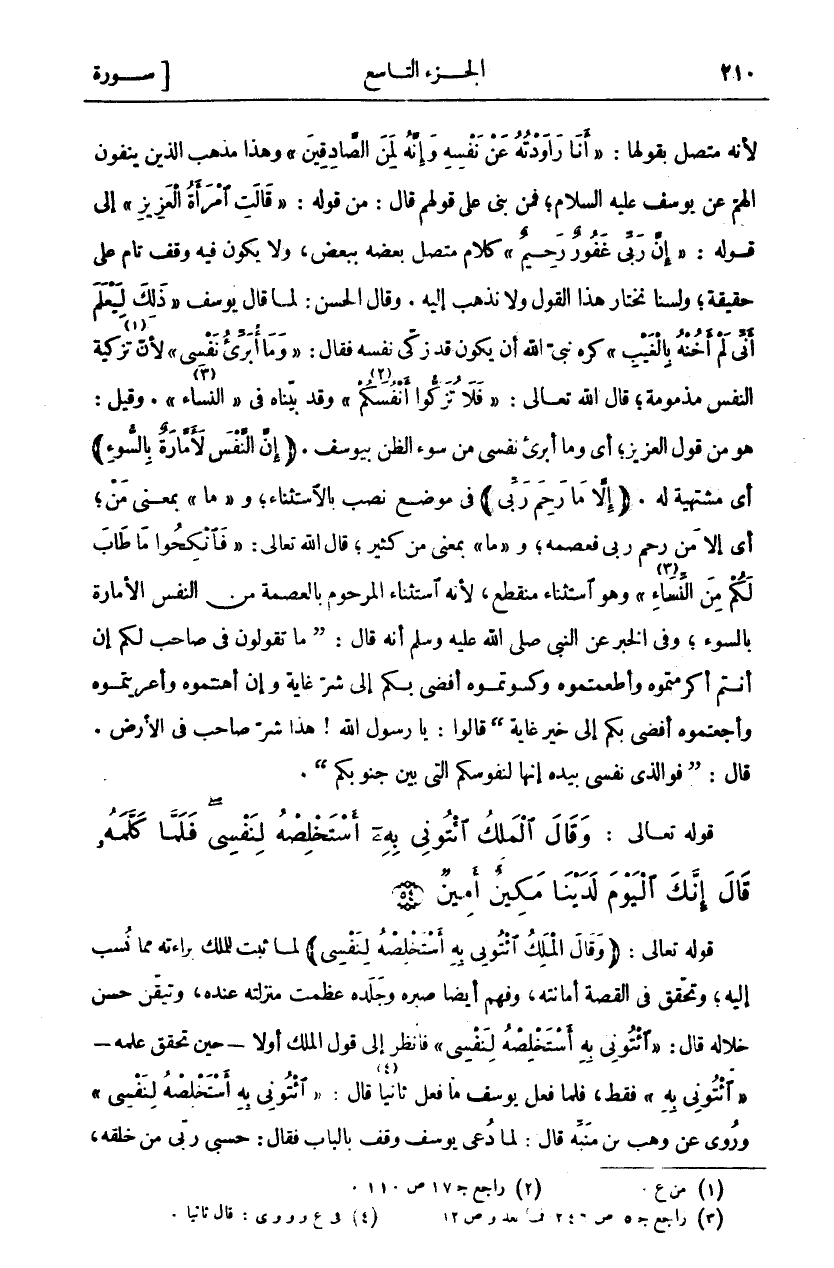 ٢١٠ الجزء التاسع [ سورة
لأنه متصل بقولها : « أَنَا رَاوَدْتُهُ عَنْ نَفْسِهِ وَإِنَّهُ لَمِنَ الصَّادِقِينَ » وهذا مذهب الذين ينفون
الهمّ عن يوسف عليه السلام؛ فمن بنى على قولهم قال : من قوله : « قَالَتِ ٱمْرَأَةُ الْعَزِيزِ » إلى
قوله : « إِنَّ رَبِّي غَفُورٌ رَحِيمٌ » كلام متصل بعضه ببعض، ولا يكون فيه وقف تام على
حقيقة؛ ولسنا نختار هذا القول ولا نذهب إليه . وقال الحسن : لما قال يوسف « ذَلِكَ لِيَعْلَمَ
أَنِّي لَمْ أَخُنْهُ بِالْغَيْبِ » كره نبيّ الله أن يكون قد زكّى نفسه فقال : « وَمَا أُبَرِّئُ نَفْسِي »(١) لأنّ تزكية
النفس مذمومة؛ قال الله تعالى : « فَلَا تُزَكُّوا أَنْفُسَكُمْ »(٢) وقد بيّناه فى « النساء »(٣) . وقيل :
هو من قول العزيز؛ أى وما أبرئ نفسى من سوء الظن بيوسف . ﴿ إِنَّ النَّفْسَ لَأَمَّارَةٌ بِالسُّوءِ ﴾
أى مشتهية له . ﴿ إِلَّا مَا رَحِمَ رَبِّي ﴾ فى موضع نصب بالاستثناء؛ و « ما » بمعنى مَنْ؛
أى إلا مَن رحم ربى فعصمه؛ و «ما» بمعنى من كثير؛ قال الله تعالى : « فَٱنْكِحُوا مَا طَابَ
لَكُمْ مِنَ النِّسَاءِ »(٣) وهو ٱستثناء منقطع، لأنه ٱستثناء المرحوم بالعصمة من النفس الأمارة
بالسوء؛ وفى الخبر عن النبى صلى الله عليه وسلم أنه قال : ” ما تقولون فى صاحب لكم إن
أنتم أكرمتموه وأطعمتموه وكسوتموه أفضى بكم إلى شرّ غاية وإن أهنتموه وأعريتموه
وأجعتموه أفضى بكم إلى خير غاية “ قالوا : يا رسول الله ! هذا شرّ صاحب فى الأرض .
قال : ” فوالذى نفسى بيده إنها لنفوسكم التى بين جنوبكم “ .
قوله تعالى : وَقَالَ ٱلْمَلِكُ ٱئْتُونِى بِهِۦٓ أَسْتَخْلِصْهُ لِنَفْسِى ۖ فَلَمَّا كَلَّمَهُۥ
قَالَ إِنَّكَ ٱلْيَوْمَ لَدَيْنَا مَكِينٌ أَمِينٌ ﴿٥٤﴾
قوله تعالى : ﴿ وَقَالَ الْمَلِكُ ٱئْتُونِي بِهِ أَسْتَخْلِصْهُ لِنَفْسِي ﴾ لما ثبت للملك براءته مما نُسب
إليه؛ وتحقّق فى القصة أمانته، وفهم أيضا صبره وجَلَده عظمت منزلته عنده، وتيقّن حسن
خلاله قال : «ٱئْتُونِي بِهِ أَسْتَخْلِصْهُ لِنَفْسِي» فٱنظر إلى قول الملك أولا — حين تحقق علمه —
« ٱئْتُونِي بِهِ » فقط، فلما فعل يوسف ما فعل ثانيا(٤) قال : « ٱئْتُونِي بِهِ أَسْتَخْلِصْهُ لِنَفْسِي »
ورُوى عن وهب بن منبّه قال : لما دُعى يوسف وقف بالباب فقال : حسبى ربّى من خلقه،
(١) من ع . (٢) راجع جـ ١٧ ص ١١٠ .
(٣) راجع جـ ٥ ص فما بعد و ص ١٢ (٤) فى ع و و و ى : قال ثانيا .